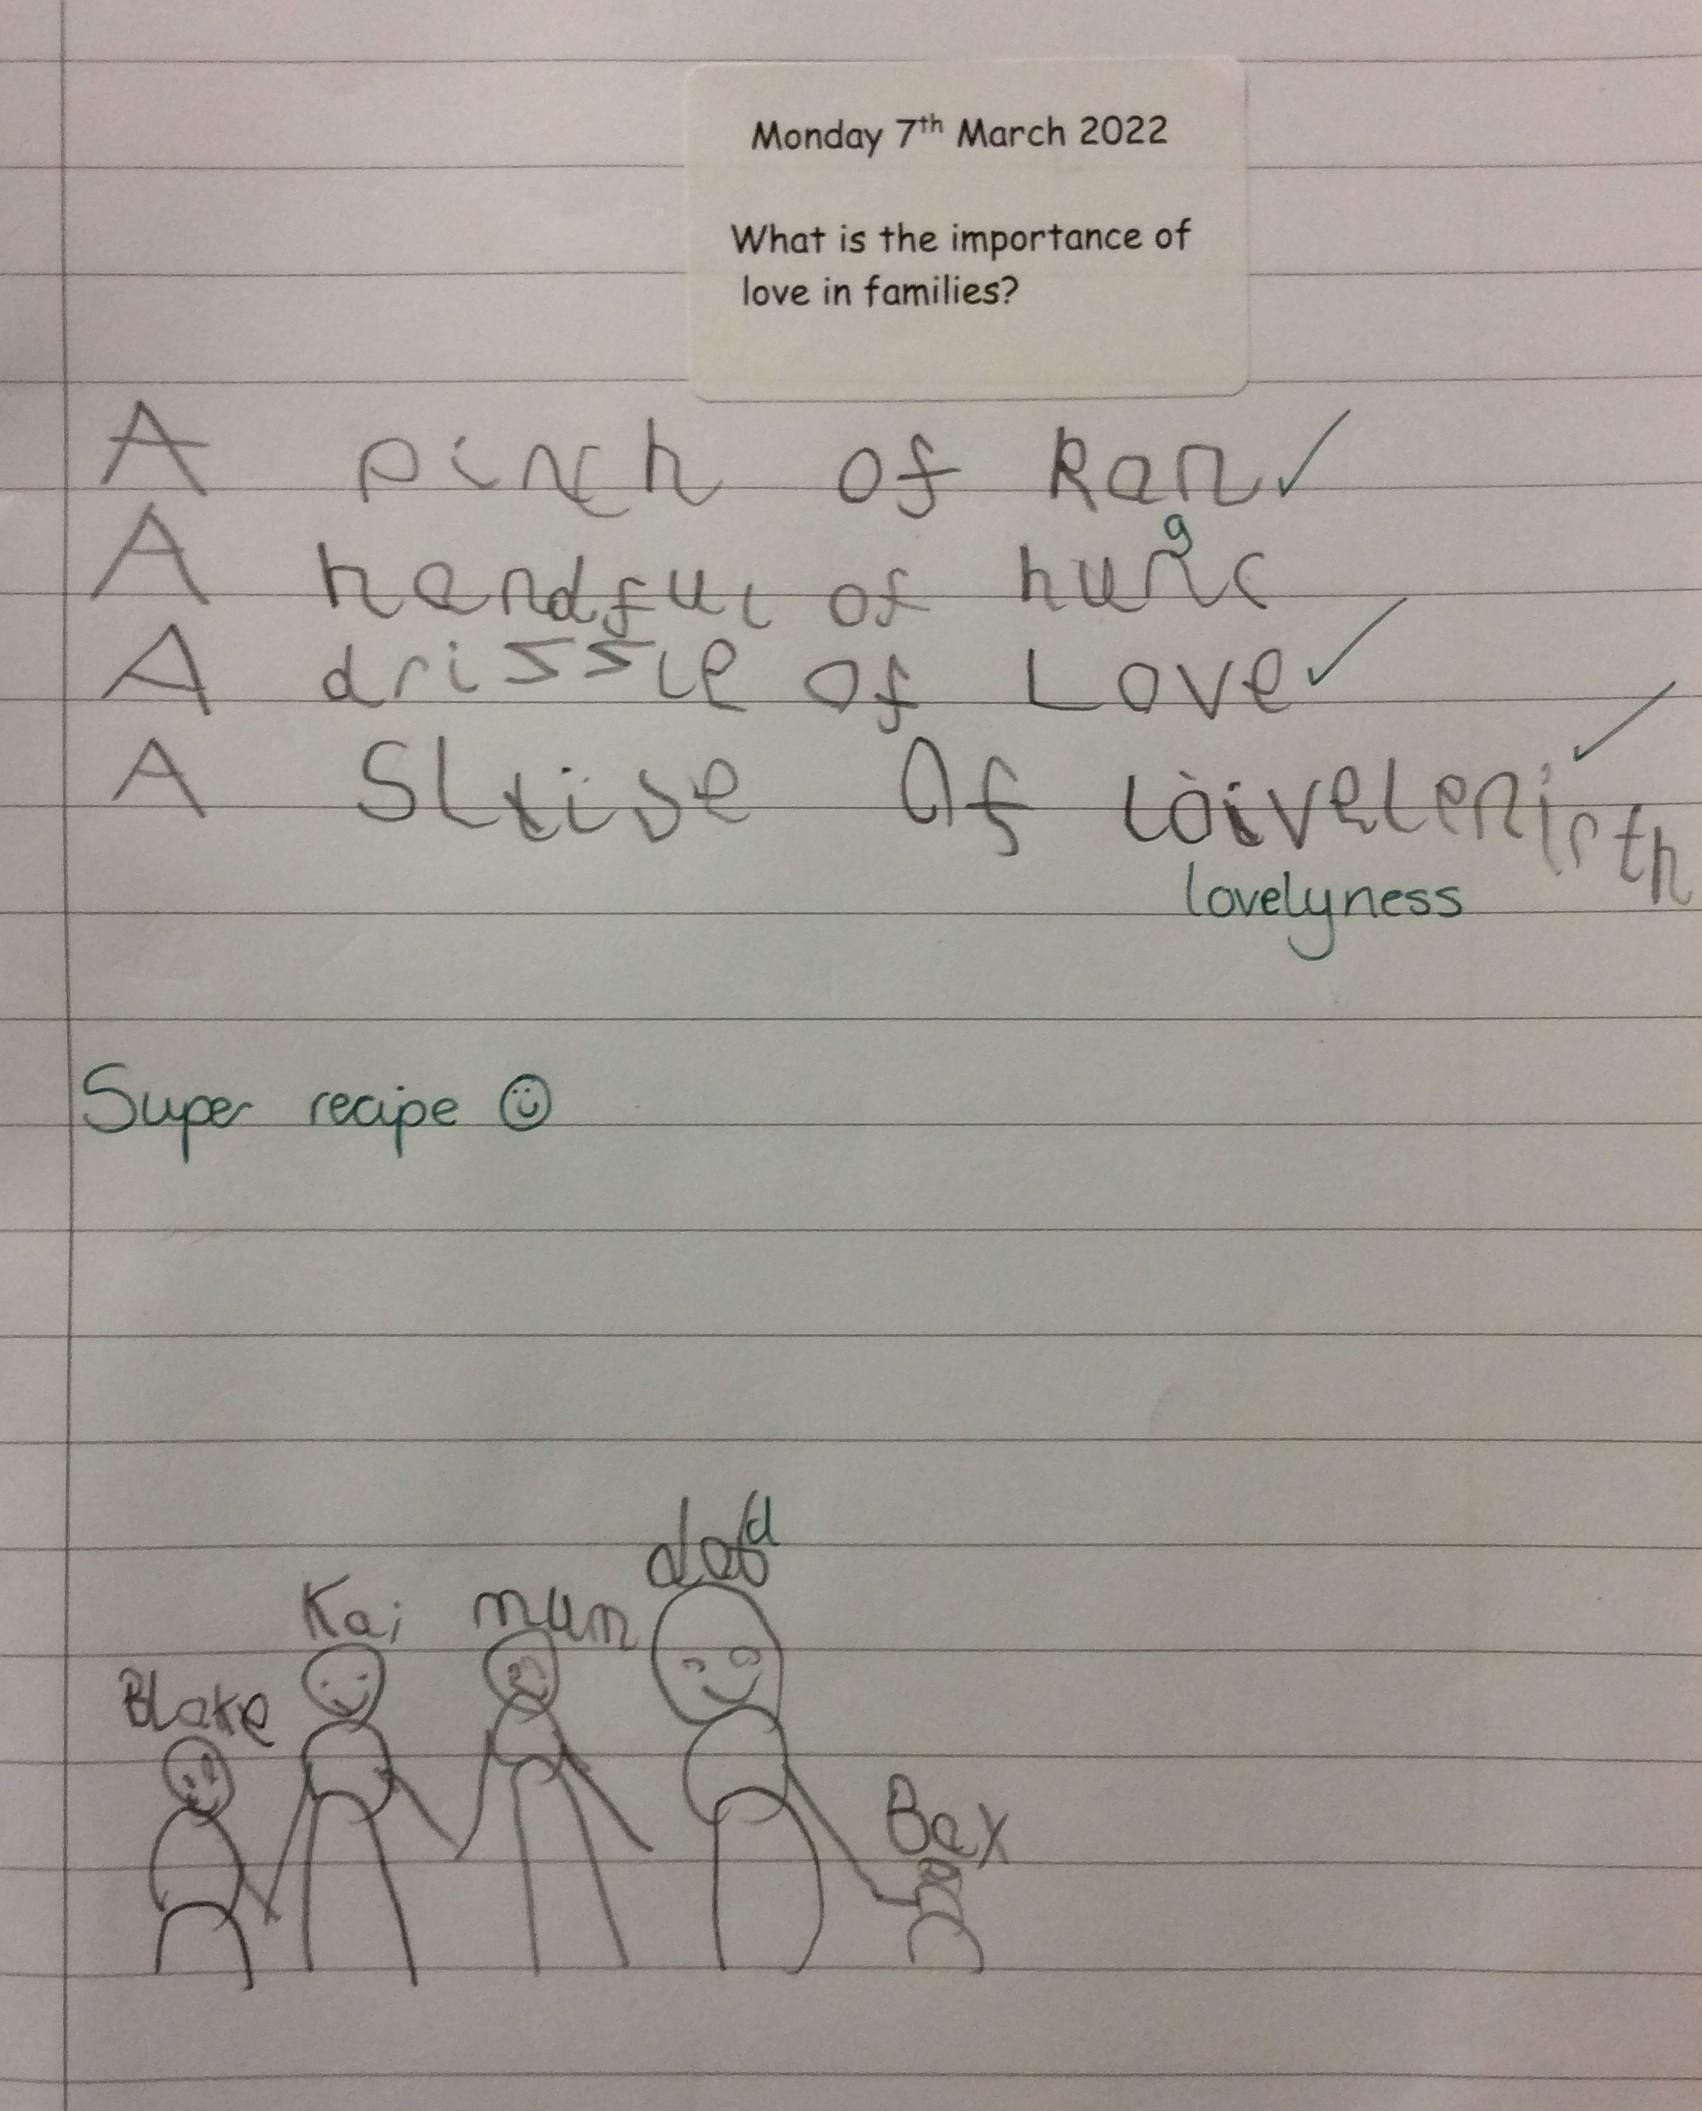 Monday 7th March 2022
What is the importance of
love in families?
A pinch of Ran
A handful of hugs
A drissle of Love
A Sliise of
lovelyness
Super recipe
dad
Kai mum
Blake
Bax